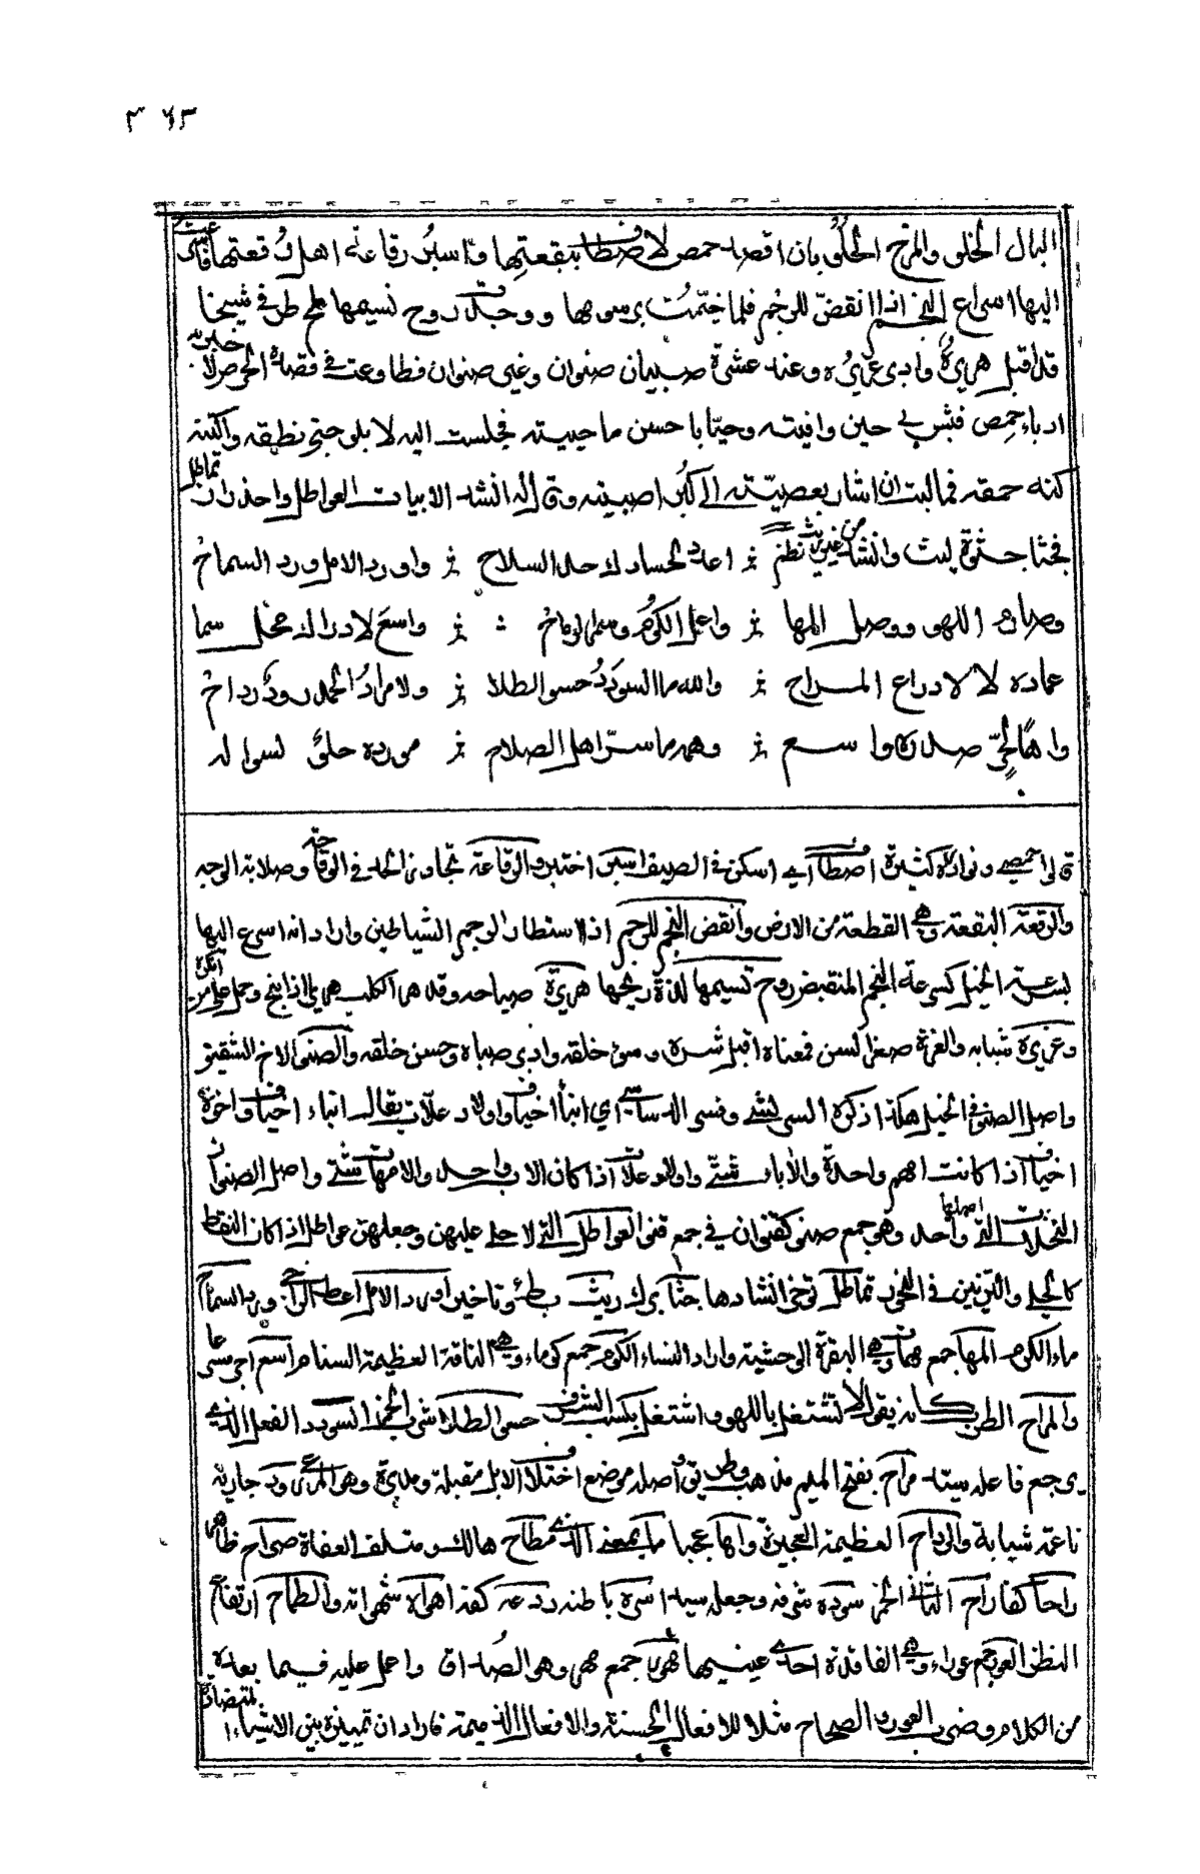 ٣٦٣
البال الخلو والمرح الحلو بان اقصد حمص لاصطاف ببقعتها واسبر رقاعة اهل رقعتها فاسرعت
اليها اسراع النجم اذا انقض للرجم فلما خيّمت برسومها ووجدت روح نسيمها لمح طرفي شيخا
قد اقبل هريره وادبر غريره وعنده عشرة صبيان صنوان وغير صنوان فطاوعت في قصده الحرص لاخبر به
ادباء حمص فبش بي حين وافيته وحيّا باحسن ما حييته فجلست اليه لابلو جنى نطقه واكتنه
كنه حمقه فما لبث ان اشار بعصيّته الى كبر اصيبيته وقال له انشد الابيات العواطل واحذر ان تماطل
فجثا جثوة ليث وانشد من غير ريث نظم اعدد لحسادك حد السلاح واورد الامل ورد السماح
وصارم اللهو ووصل المها واعمل الكوم وسمر الرماح واسع لادراك محل سما
عماده لا لادراع المراح والله ما السودد حسو الطلا ولا مراد الحمد رود رداح
واها لحرّ صدره واسع وهمه ما سرّ اهل الصلاح مورده حلو لسواله
قال حمص ونوادر كثيرة اصطاف اي اسكن في الصيف اسبر اختبر والرقاعة تجاوز الحد في الوقاحة وصلابة الوجه
والرقعة البقعة وهي القطعة من الارض وانقض النجم للرجم اذا استطار لرجم الشياطين واراد انه اسرع اليها
بسرعة الخيل كسرعة النجم المنقبض روح نسيمها لذة ريحها هريره صياحه وقد هر الكلب هريرا اذا نبح وحمل على من انكره
وغريره شبابه والغرة صغر السن فمعناه اقبل شره وسوء خلقه وادبر صباه وحسن خلقه والصنو الاخ الشقيق
واصل الصنو في الخيل هكذا ذكره اي ابناء اخياف واولاد علات يقال ابناء اخياف واخوة
اخياف اذا كانت امهم واحدة والاباء شتى واولاد علات اذا كان الاب واحد والامهات شتى واصل الصنوان
النخلات التي اصلها واحد وهو جمع صنو كقنوان في جمع قنو العواطل التي لا حلي عليهن وجعلهن عواطل اذ كان النقط
كالحلي والتزيين في الحروف تماطل توخر انشادها جثا برك ريث بطئ وتاخير اورد الامل اعط الراجي ورد السماح
ماء الكرم المها جمع مهاة وهي البقرة الوحشية واراد النساء الكوم جمع كوماء وهي الناقة العظيمة السنام اسع اجر سما علا
والمراح الطرب كانه يقول لا تشتغل باللهو واشتغل بكسب الشرف حسو الطلا شرب الخمر السودد الفعل الذي
يرجع فاعله سيدا مراد بفتح الميم مذهب وطريق واصله موضع اختلاف الابل مقبلة ومدبرة وهو المرعى رود جارية
ناعمة شبابة والرداح العظيمة العجيزة واها عجبا ما بمعنى الذي مطاح هالك ومتلف العفاة صراح ظاهر
راحا كفا راح الثاني الخمر سوده شرفه وجعله سيدا سره باطنه ردعه كفه اهواه شهواته والطماح ارتفاع
النظر العور جمع عوراء وهي الفاقدة احدى عينيها مهور جمع مهر وهو الصداق واعمل عليه فيما بعده
من الكلام وضرب العور والصحاح مثلا للافعال الحسنة والافعال الذميمة فاراد ان تمييزه بين الاشياء المتضادة